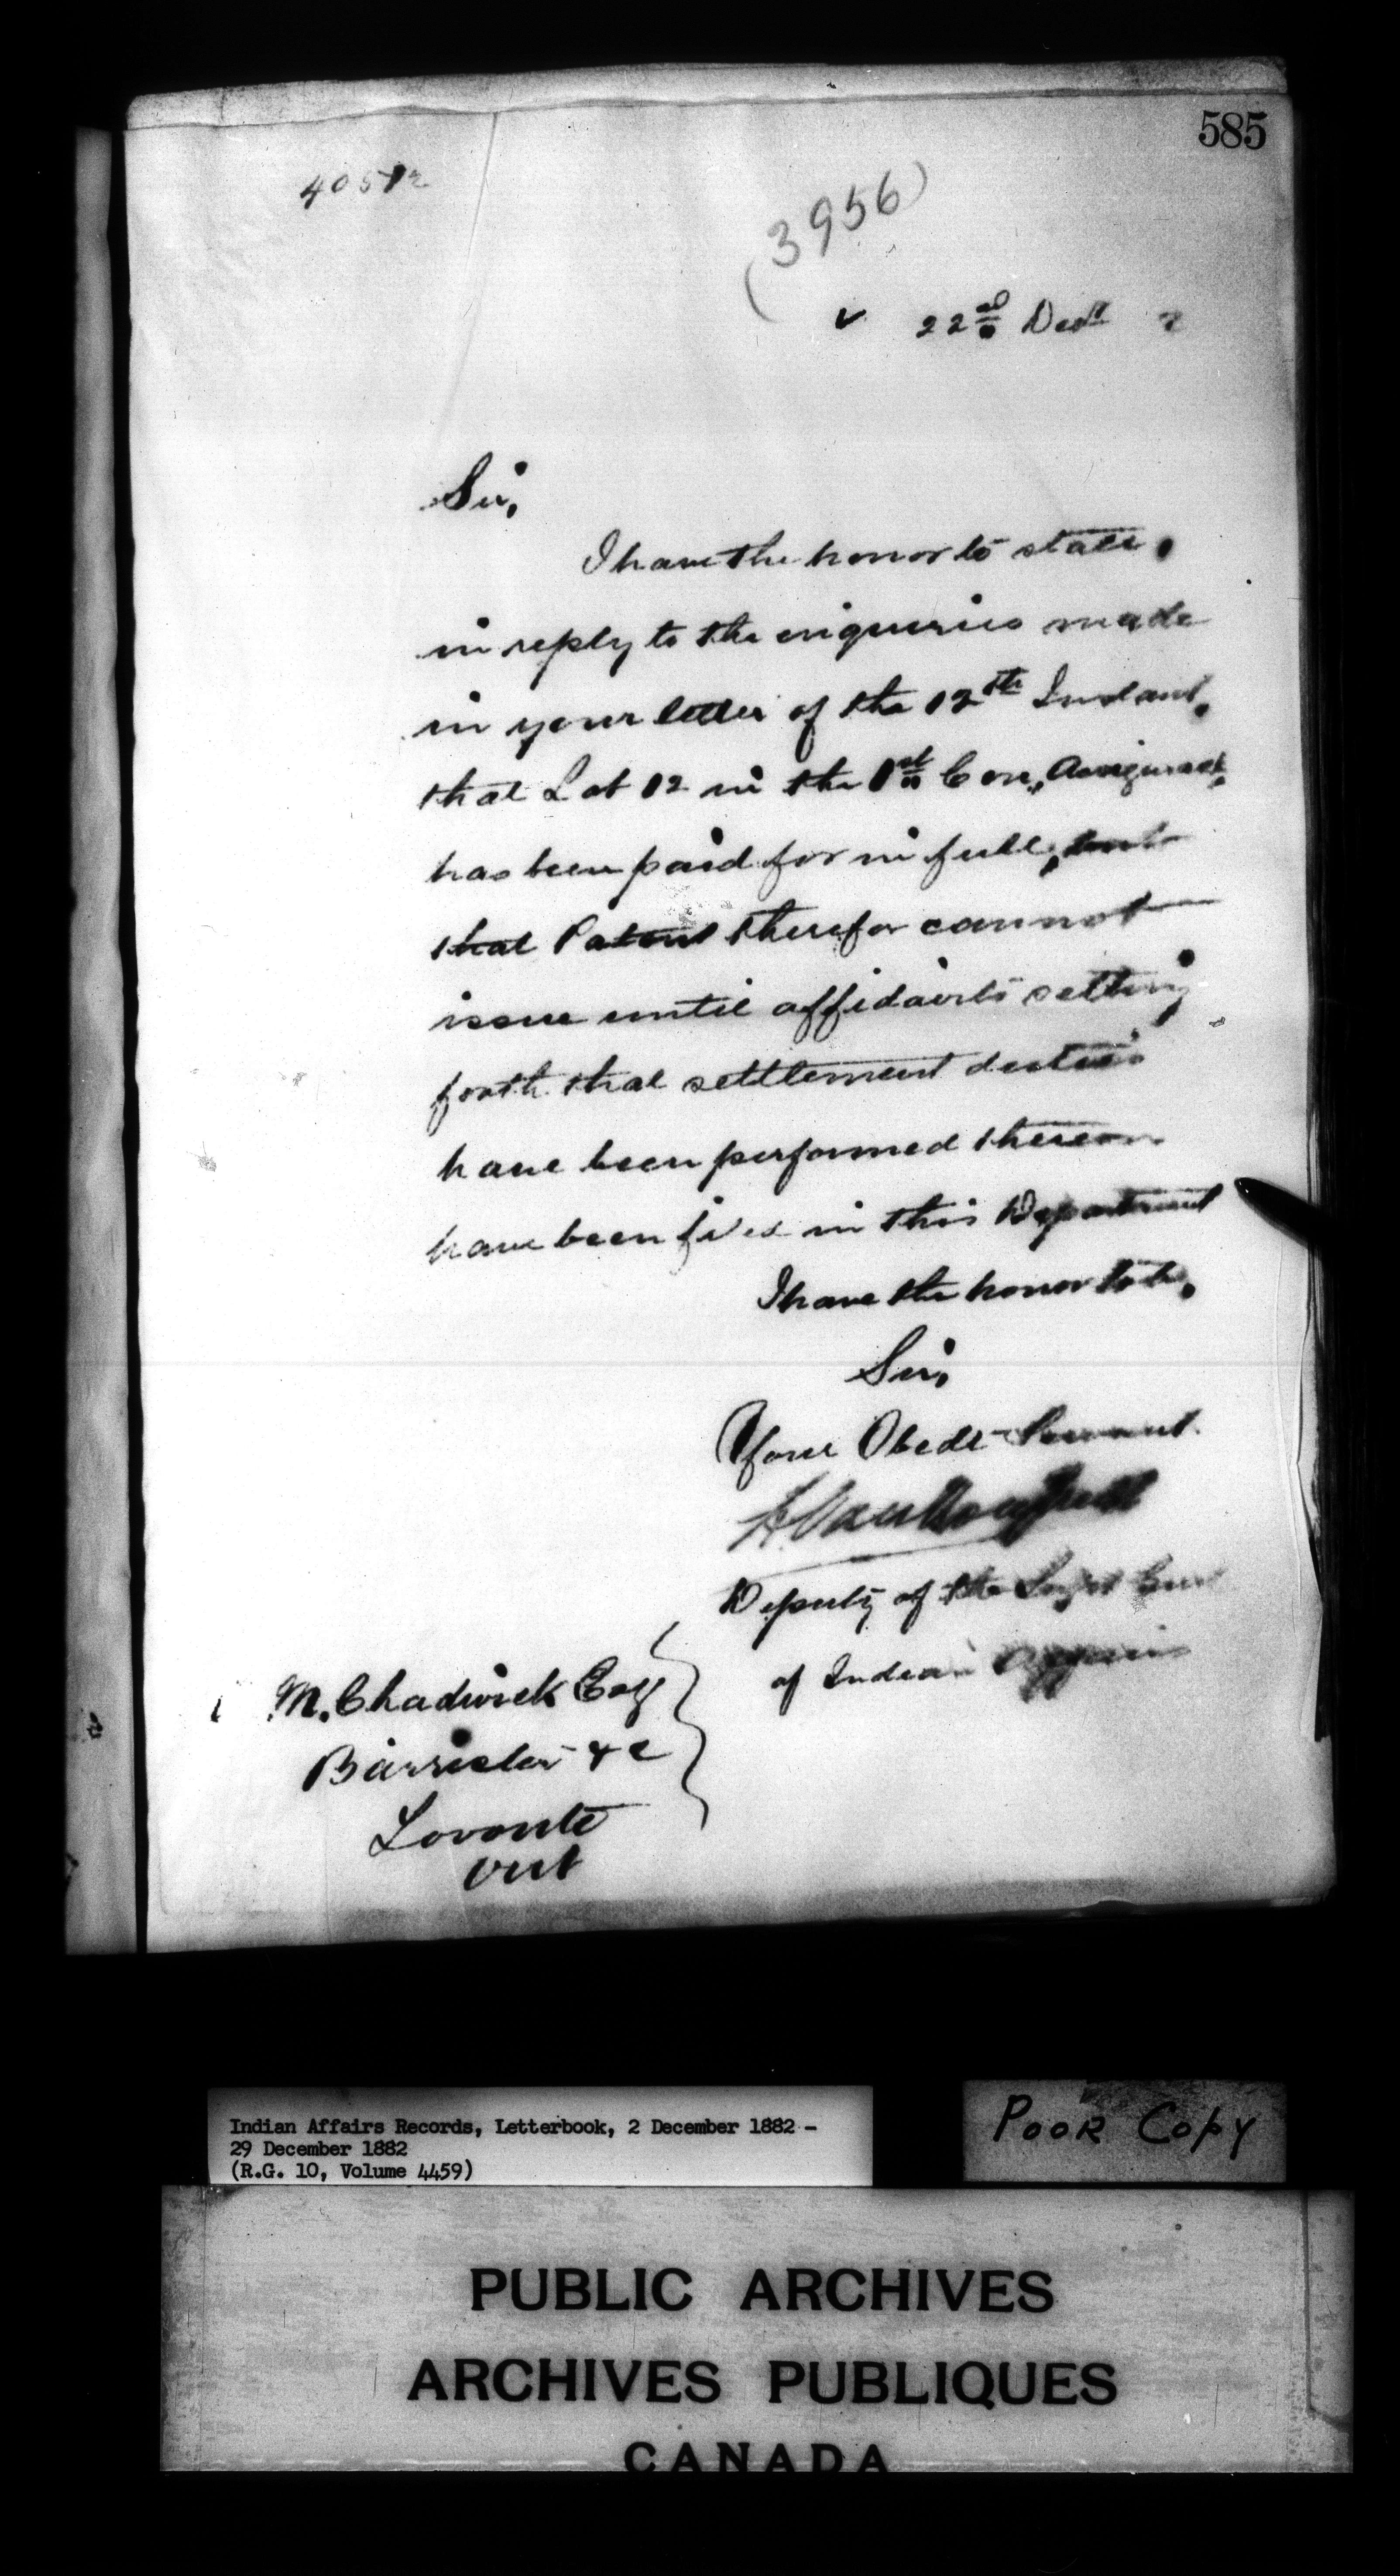 585
40512
(3956)
22nd Decr 2
Sir,
I have the honor to state,
in reply to the enquiries made
in your letter of the 12th Instant,
that Lot 12 in the 1st Con, Assiginack,
has been paid for in full, but
that Patent therefor cannot
issue until affidavits setting
forth that settlement duties
have been performed thereon
have been filed in this Department
I have the honor to be,
Sir,
Your Obedt Servant
L. VanKoughnet
Deputy of the Supt Genl
of Indian Affairs
M. Chadwick Esq
Barrister &c
Toronto
Ont
Indian Affairs Records, Letterbook, 2 December 1882 -
29 December 1882
(R.G. 10, Volume 4459)
POOR COPY
PUBLIC ARCHIVES
ARCHIVES PUBLIQUES
CANADA